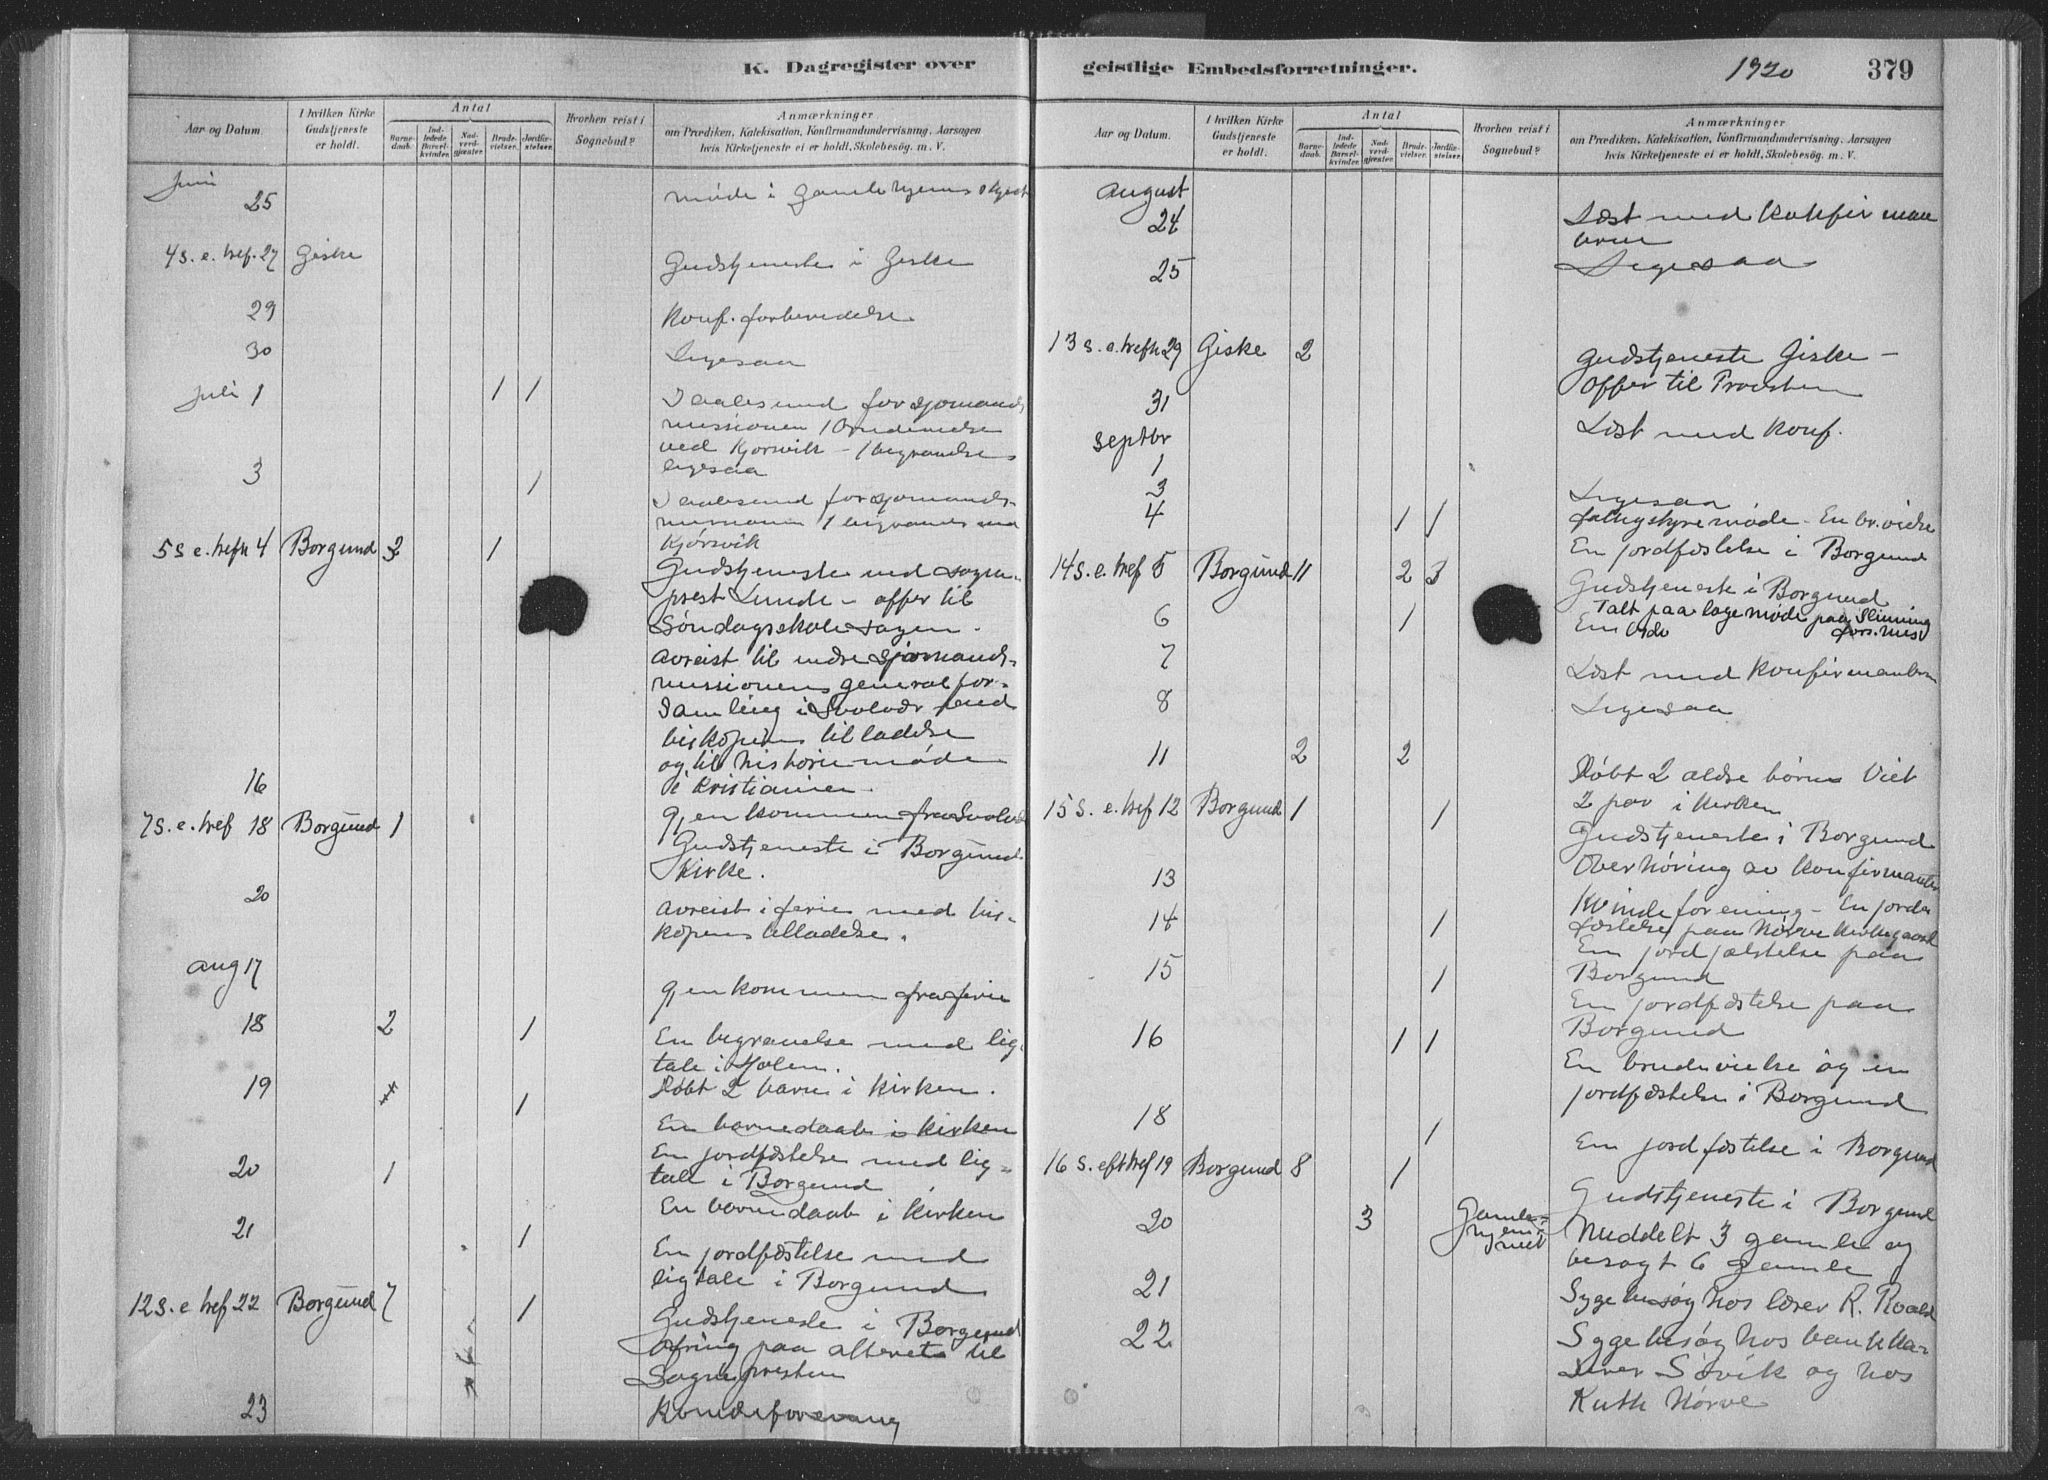 K. Dagregister over
Aar og Datum.
I hvilken Kirke Gudstjeneste er holdt.
Antal
Barnedaab.
Indledede Barselkvinder.
Nadverdgjæster.
Brudevielser.
Jordfæstelser.
Hvorhen reist i Sognebud?
Anmærkninger
om Prædiken, Katekisation, Konfirmandundervisning, Aarsagen
hvis Kirketjeneste ei er holdt, Skolebesøg. m. V.
Juni
25 møde i gamlehjems
4 s. e. tref. 27 Giske Gudstjeneste i Giske
29 Konf. forberedelse
30 Ligesaa
Juli 1 1 1 I aalesund for sjømands
missionen 1 brudevielse
ved Kjørsvik - 1 begravelse
ligesaa
3 1 I aalesund for sjømands-
missionen 1 begravelse ved
Kjørsvik
5 s e. trefh 4 Borgund 3 1 Gudstjeneste ved sogne-
prest Lunde - offer til
Søndagsskolesagen.
avreist til indre sjømands-
missionens general for-
samling i Svolvær med
biskopens tilladelse
og til historiemøde
i Kristiania.
16 gjenkommen fra Svolvær
7 s. e. tref 18 Borgund 1 Gudstjeneste i Borgund
Kirke.
20 avreist i ferie med bis-
kopens tilladelse.
aug 17 gjenkommen fra ferie
18 2 1 En begravelse med lig-
tale i
Døbt 2 barn i kirken.
19 1 En barnedaab i kirken
En jordfæstelse med lig-
tale i Borgund
20 1 En barnedaab i kirken
21 1 En jordfæstelse med
ligtale i Borgund
12 s. e tref 22 Borgund 7 1 Gudstjeneste i Borgund
Ofring paa alteret til
Sognepresten
23 Kvindeforening
geistlige Embedsforretninger.
1920
379
Aar og Datum.
I hvilken Kirke Gudstjeneste er holdt.
Antal
Barnedaab.
Indledede Barselkvinder.
Nadverdgjæster.
Brudevielser.
Jordfæstelser.
Hvorhen reist i Sognebud?
Anmærkninger
om Prædiken, Katekisation, Konfirmandundervisning, Aarsagen
hvis Kirketjeneste ei er holdt, Skolebesøg. m. V.
august
24 Læst med Konfirman
terne
25 Ligesaa
13 s. e. trefh 29 Giske 2 Gudstjeneste Giske -
Offer til Provsten
31 Læst med Konf.
Septbr
1
3 Ligesaa
4 1 1 møde - En br.vielse
En jordfæstelse i Borgund
14 s. e. tref 5 Borgund 11 2 3 Gudstjeneste i Borgund
Talt paa logemøde paa Slinning
6 1 En
7 Læst med Konfirmanterne
8 Ligesaa
11 2 2 Døbt 2 ældre børn Viet
2 par i kirken
15 s. e. tref 12 Borgund 1 1 Gudstjeneste i Borgund
Overhøring av konfirmanter
13 Kvindeforening - En jord
14 1 fæstelse paa Nørve kirkegaard
En jordfæstelse paa
15 1 Borgund
En jordfæstelse paa
Borgund
16 1 1 En brudevielse og en
jordfæstelse i Borgund
18 1 En jordfæstelse i Borgund
16 s. eft tref 19 Borgund 8 1 Gudstjeneste i Borgund
20 3 Gamle-
hjem-
met
Meddelt 3 gamle og
besøgt 6 gamle
21 Sygebesøg hos lærer K. Roald
22 Sygebesøg hos bankka-
serer Søvik og hos
Ruth Nørve